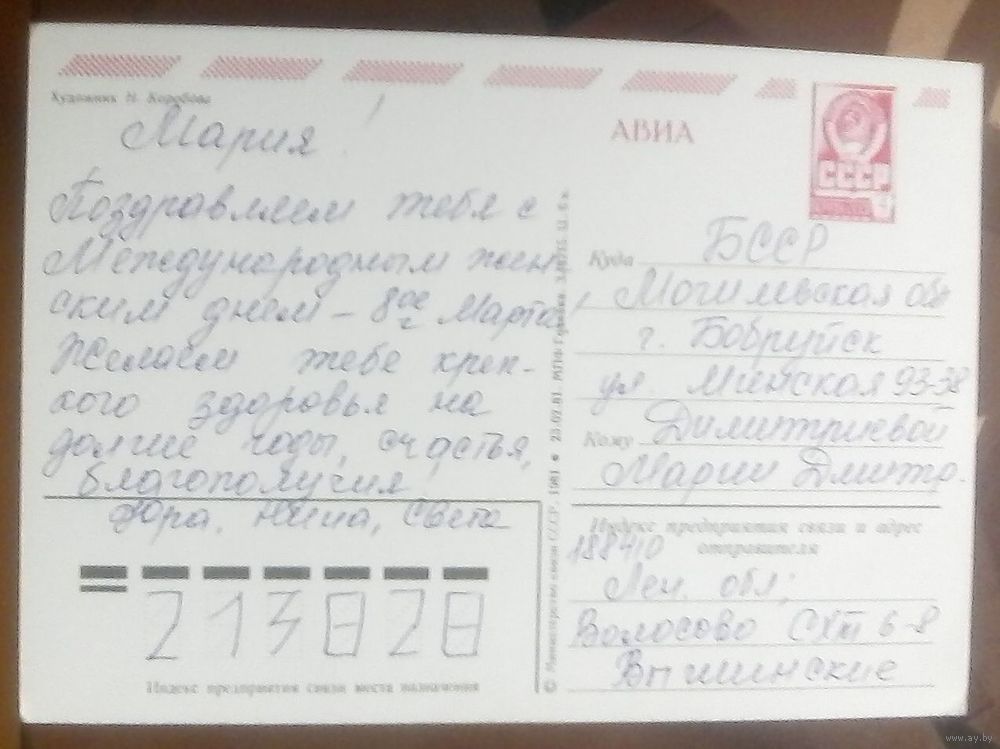 Художник Н. Коробова
Мария!
Поздравляем тебя с
Международным жен
ским днем – 8ое Марта!
Желаем тебе креп-
кого здоровья на
долгие годы, счастья,
благополучия
Юра, Нина, Света
213828
Индекс предприятия связи места назначения
© Министерство связи СССР, 1981 ● 23.02.81.
АВИА
СССР
Куда БССР
Могилевская обл
г. Бобруйск
ул. Минская 93-38
Кому Димитриевой
Марии Дмитр.
Индекс предприятия связи и адрес
отправителя
188410
Лен. обл;
Волосово СХТ 6-8
www.ay.by